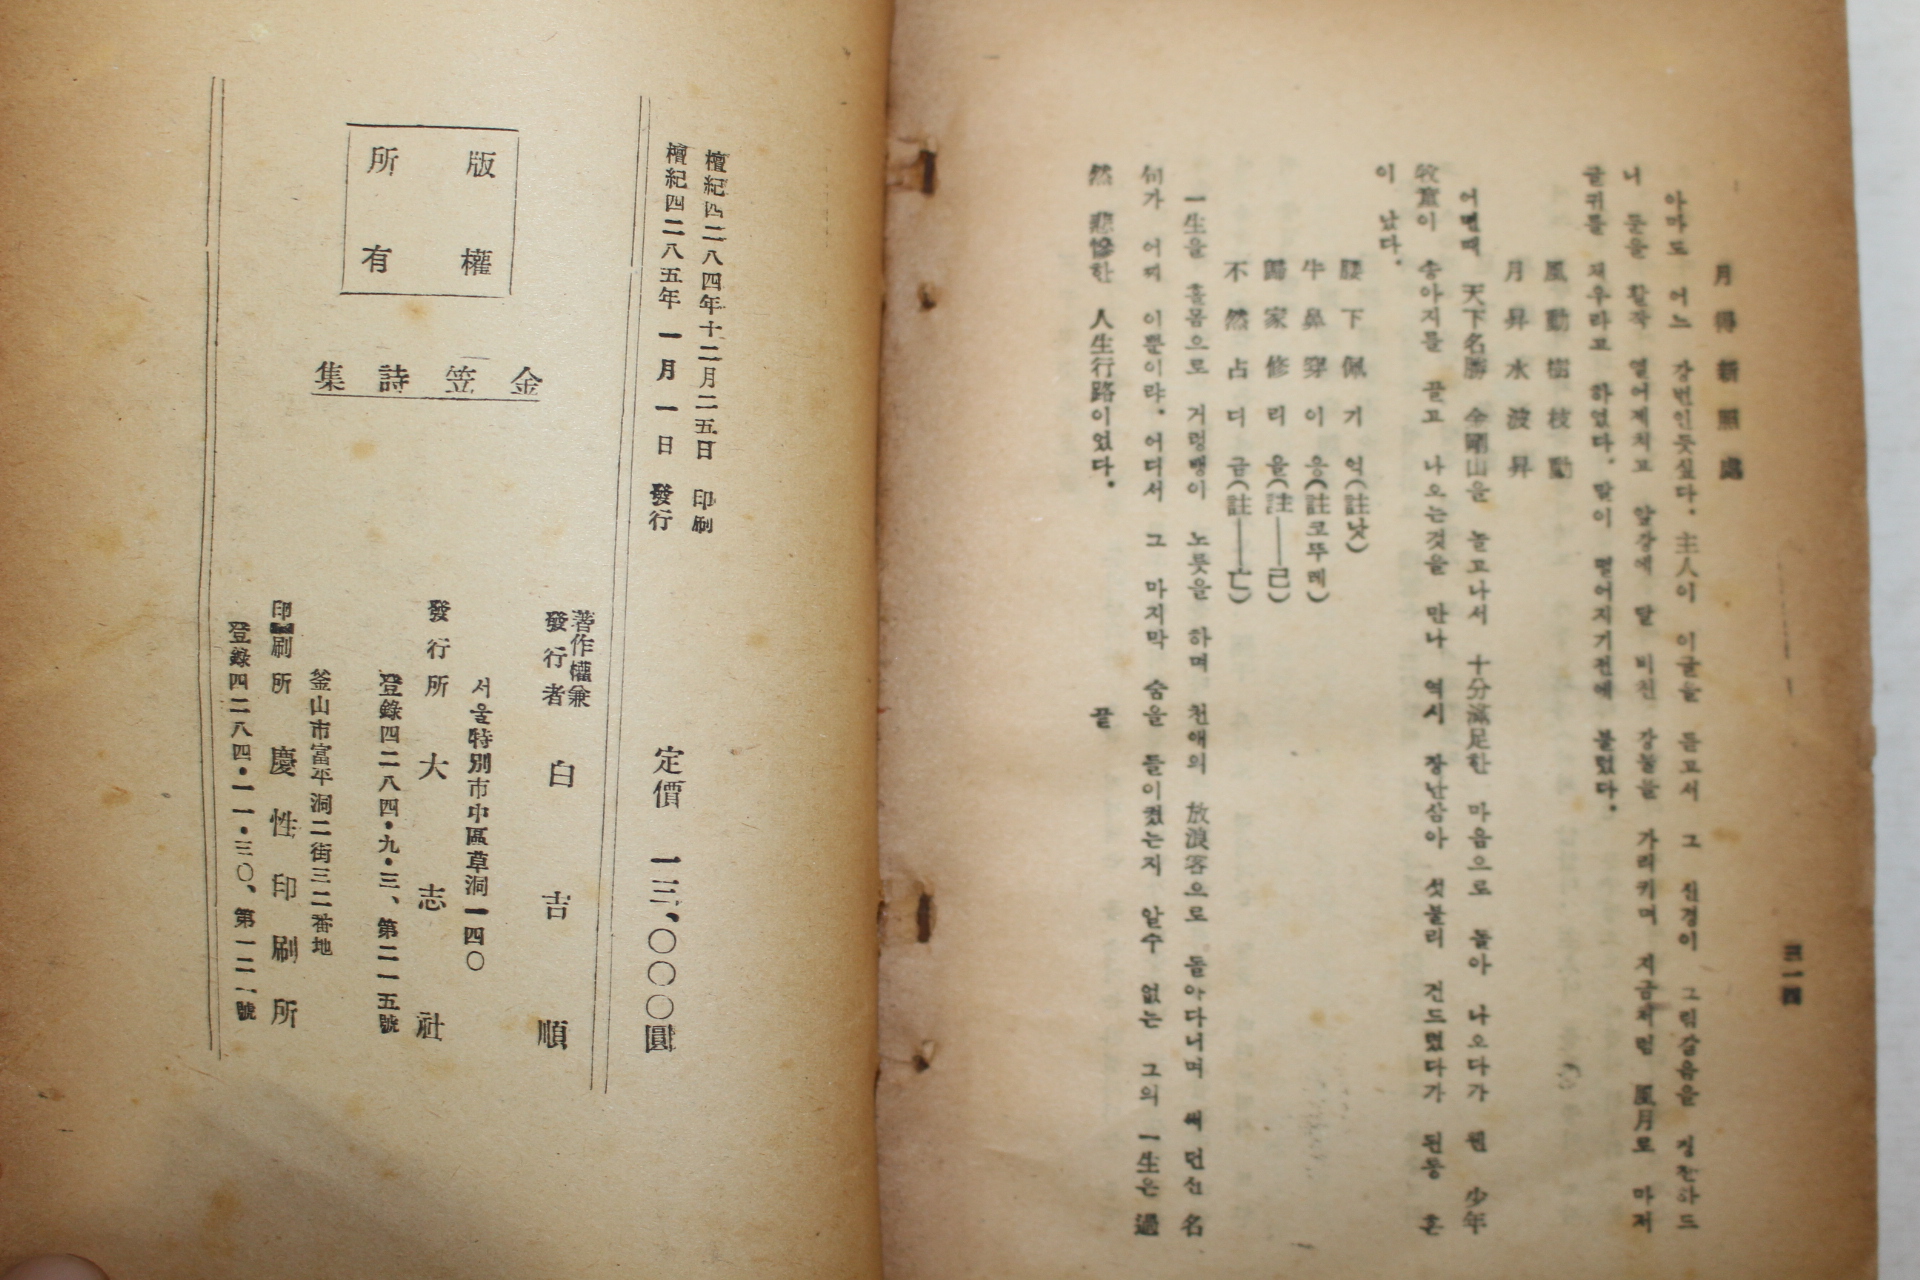 三一四
月得新照處
아마도 어느 강변인듯싶다. 主人이 이글을 듣고서 그 신경이 그림같음을 칭찬하드
니 문을 활작 열어제치고 앞강에 달 비친 강물을 가리키며 지금처럼 風月로 마저
글귀를 채우라고 하였다. 말이 떨어지기전에 불렀다.
風動樹枝動
月昇水波昇
어떤때 天下名勝 金剛山을 놀고나서 十分滿足한 마음으로 돌아 나오다가 웬 少年
牧童이 송아지를 끌고 나오는것을 만나 역시 장난삼아 섯불리 건드렸다가 된통 혼
이 났다.
腰下佩기억(註낫)
牛鼻穿이응(註코뚜레)
歸家修리을(註——己)
不然占디귿(註——亡)
一生을 홀몸으로 거렁뱅이 노릇을 하며 천애의 放浪客으로 돌아다니며 써 던진 名
句가 어찌 이뿐이랴. 어디서 그 마지막 숨을 들이켰는지 알수 없는 그의 一生은 過
然 悲慘한 人生行路이었다. 끝
檀紀四二八四年十二月二五日 印刷
檀紀四二八五年 一月 一日 發行
定價 一三,〇〇〇圓
版權
所有
金笠詩集
著作權兼
發行者 白吉順
서울特別市中區草洞一四〇
發行所 大志社
登錄四二八四・九・三、第二一五號
釜山市富平洞二街三二番地
印刷所 慶性印刷所
登錄四二八四・一一・三〇、第一二一號